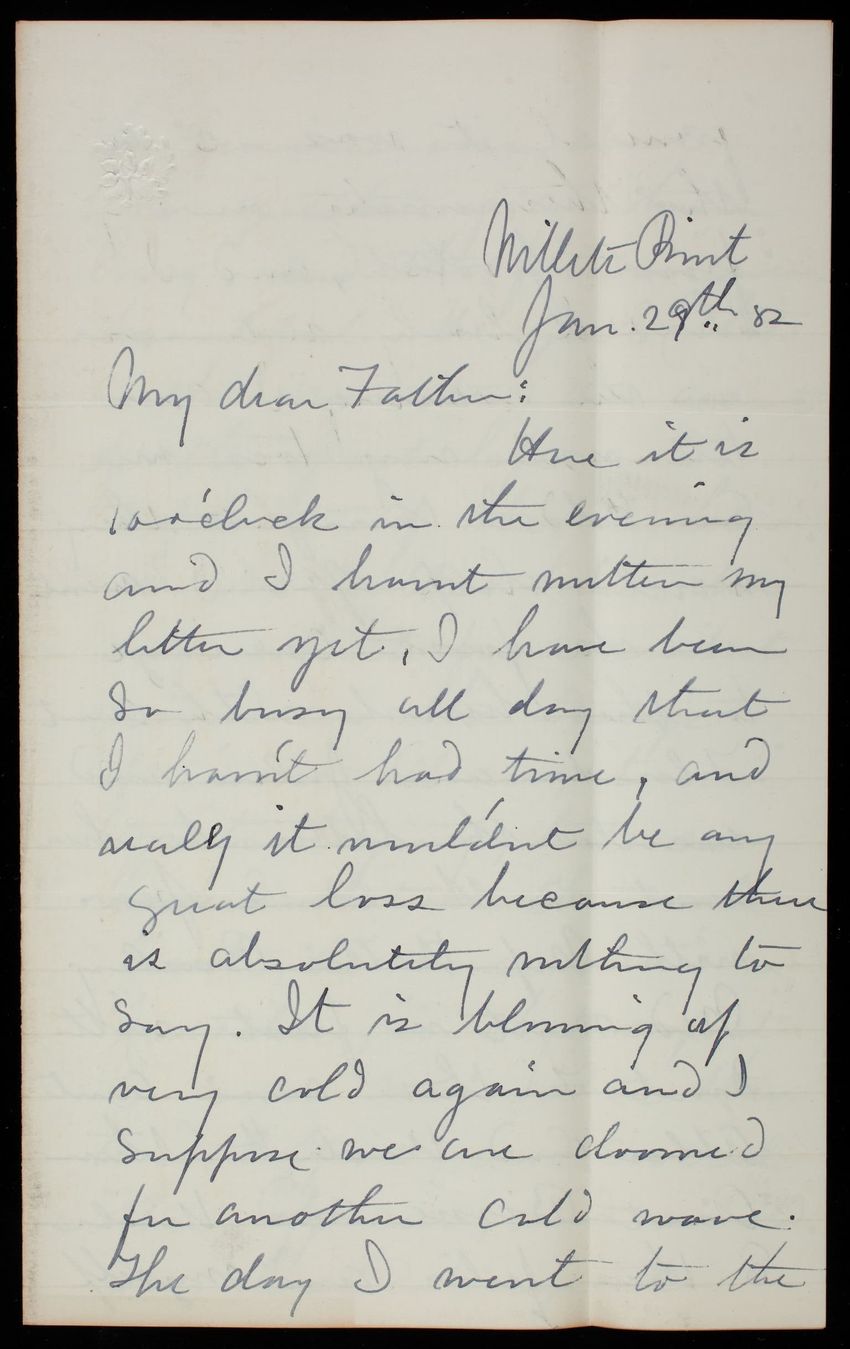 Willets Point
Jan. 29th 82
My dear Father:
Here it is
10 o'clock in the evening
and I havnt written my
letter yet, I have been
so busy all day that
I havn't had time, and
really it would'nt be any
great loss because there
is absolutely nothing to
say. It is blowing up
very cold again and I
suppose we are doomed
for another cold wave.
The day I went to the